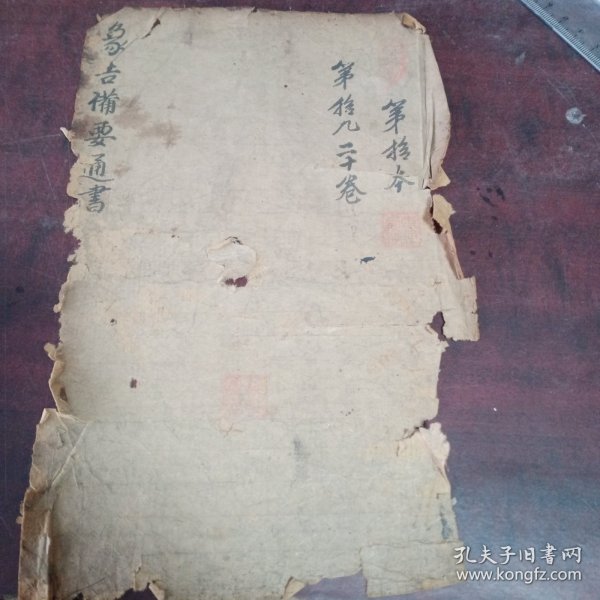 第拾本
第拾九二十卷
象吉備要通書
孔夫子旧书网
www.kongfz.com